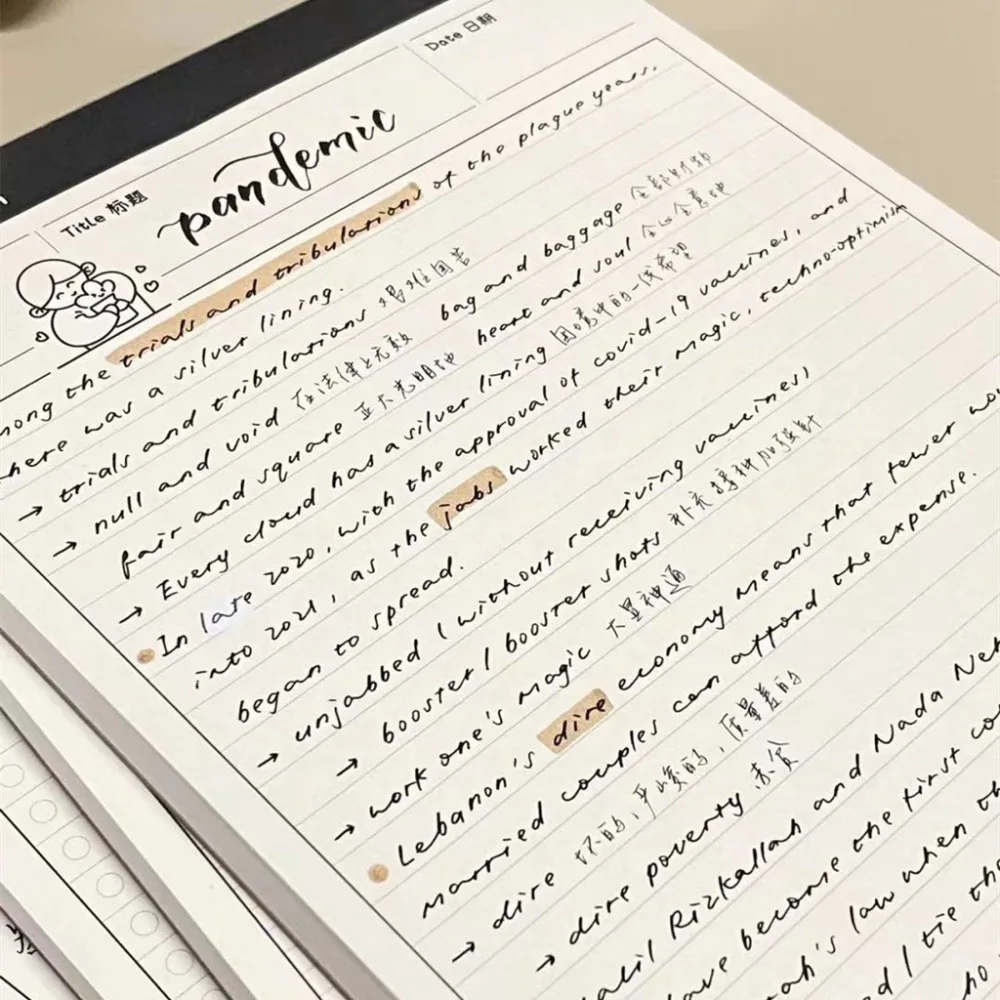 Title 标题
Date 日期
pandemic
mong the trials and tribulations of the plague years,
here was a silver lining.
→ trials and tribulations 艰难困苦
→ null and void 在法律上无效 bag and baggage 全部财物
fair and square 正大光明地 heart and soul 全心全意地
→ Every cloud has a silver lining 困境中的一线希望
In late 2020, with the approval of covid-19 vaccines, and
into 2021, as the jabs worked their magic, techno-optimism
began to spread.
→ unjabbed (without receiving vaccines)
→ booster / booster shots 补充接种加强针
→ work one's magic 大显神通
Lebanon's dire economy means that few
married couples can afford the expense.
→ dire 坏的,严峻的,质量差的
→ dire poverty 赤贫
Rizkallah and Nada
become the first
's law when
tie